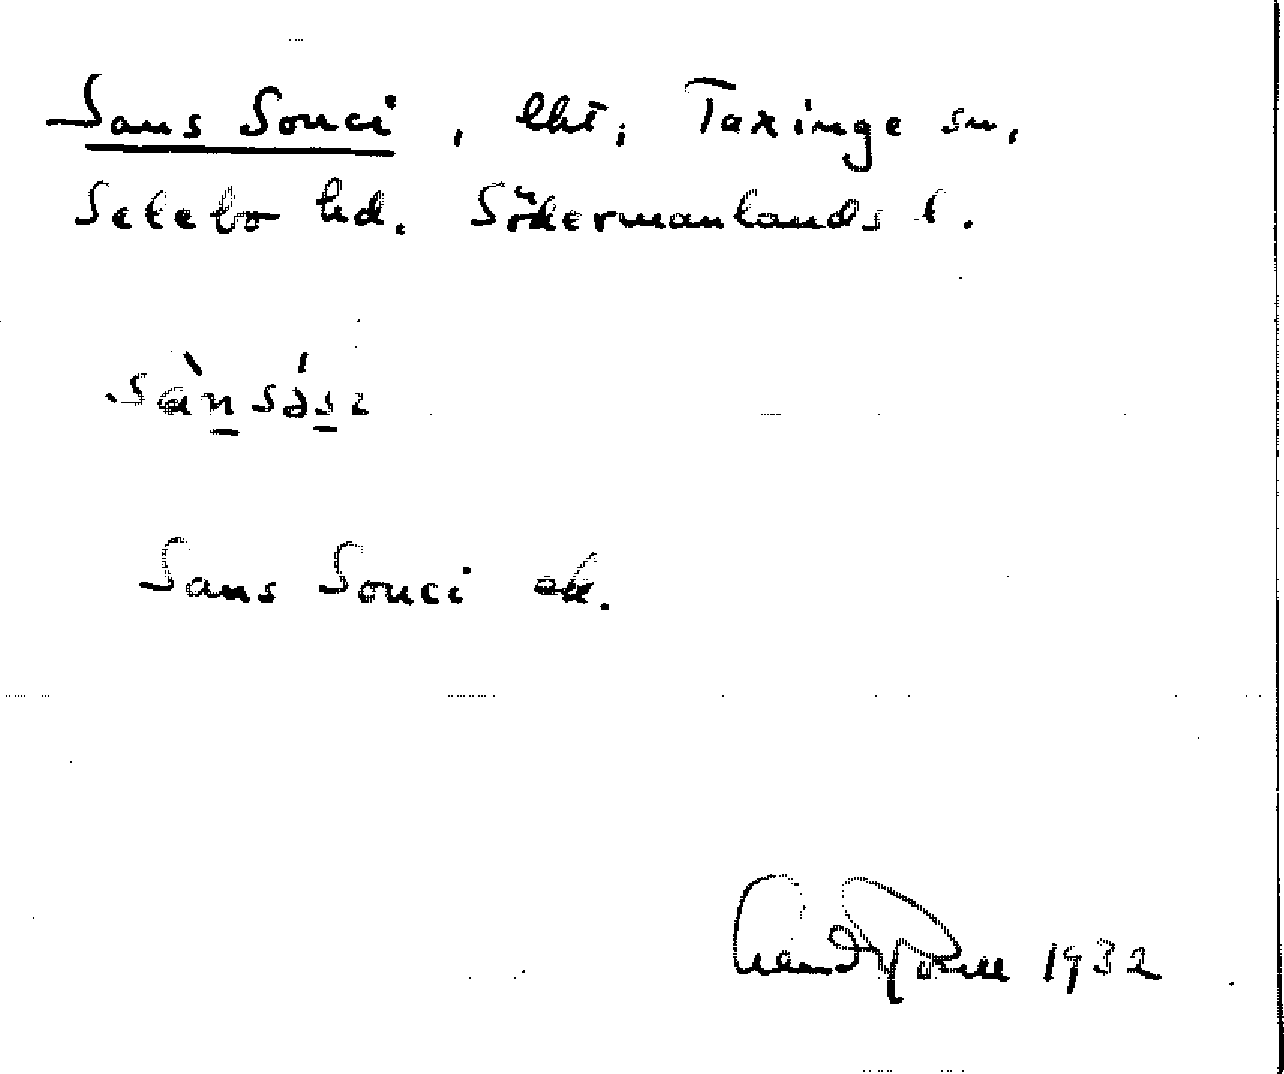 Sans Souci, lht, Taxinge sn,
Selebo hd. Södermanlands l.
sànsásı
Sans Souci ek.
1932